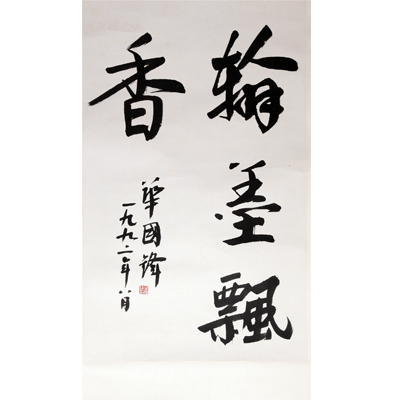 翰墨飄
香
華國鋒
一九九二年八月